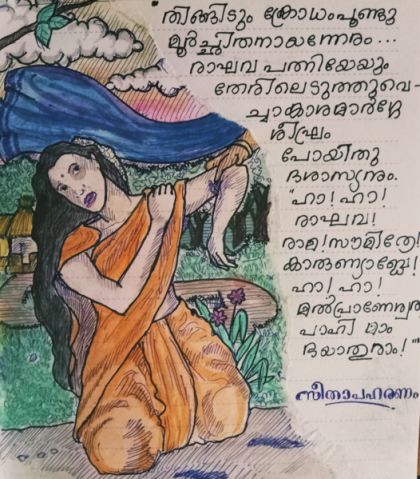 "തിങ്ങിടും ക്രോധംപൂണ്ടു
മൂർച്ഛിതനായന്നേരം...
രാഘവ പത്നിയേയും
തേരിലെടുത്തുവെ-
ച്ചാകാശമാർഗ്ഗേ
ശീഘ്രം
പോയിതു
ദശാസ്യനും.
"ഹാ! ഹാ!
രാഘവ!
രാമ! സൗമിത്രേ!
കാരുണ്യാബ്ധേ!
ഹാ! ഹാ!
മൽപ്രാണേശ്വര
പാഹി മാം
ഭയാതുരാം!"
സീതാപഹരണം